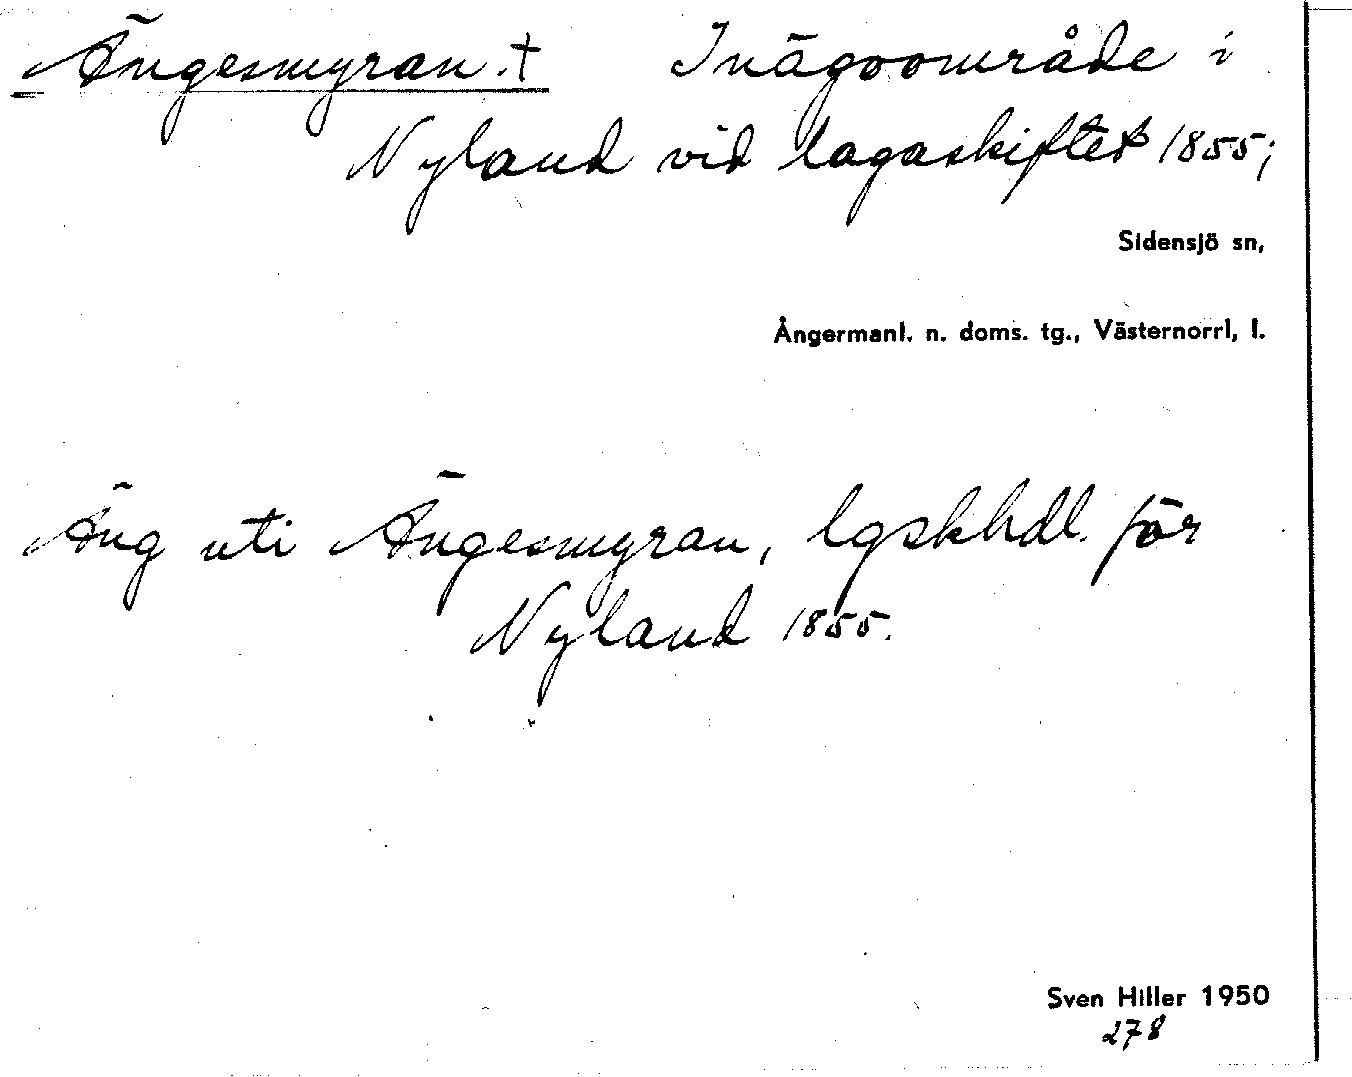 Ängesmyran.† Inägoområde i
Nyland vid lagaskiftet 1855;
Sidensjö sn,
Ångermanl. n. doms. tg., Västernorrl, l.
Äng uti Ängesmyran, lgskhdl. för
Nyland 1855.
Sven Hiller 1950
278